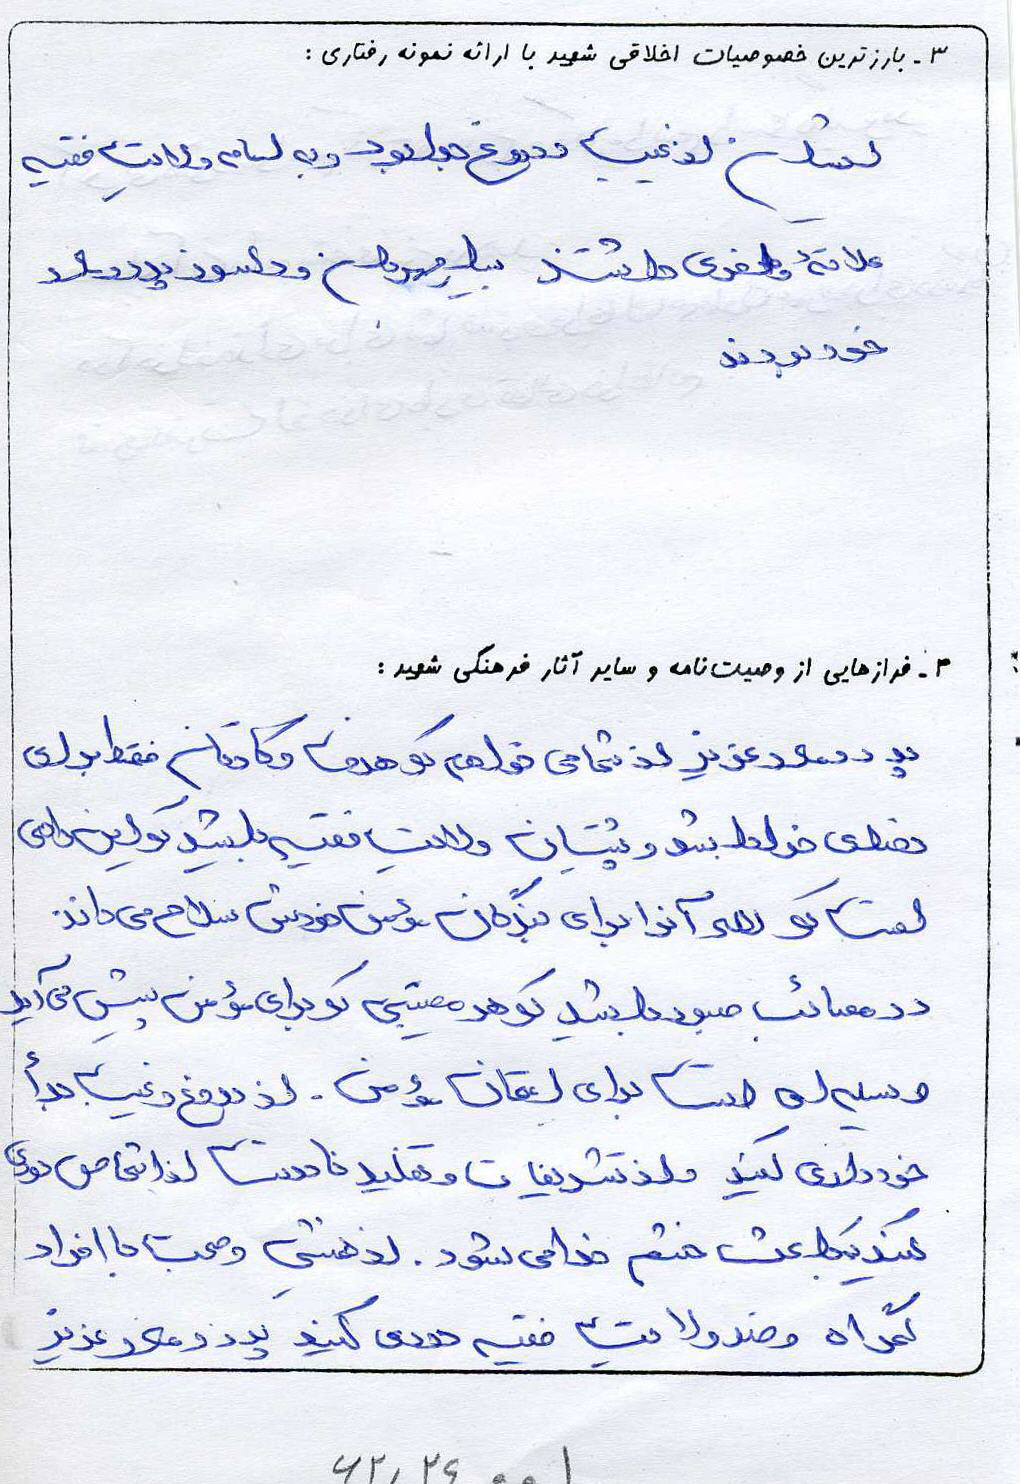 ۳ـ بارزترین خصوصیات اخلاقی شهید با ارائه نمونه رفتاری :
ایشان از غیبت و دروغ جدا بود و به امام و ولایت فقیه
علاقهٔ وافری داشتند بسیار مهربان و دلسوز پدر و مادر
خود بودند
۴ـ فرازهایی از وصیت‌نامه و سایر آثار فرهنگی شهید :
پدر و مادر عزیز از شما می خواهم که هدفتان و کارتان فقط برای
رضای خدا باشد و پشتیبان ولایت فقیه باشید که این راهی
است که الله آنرا برای بندگان مؤمن خودش سلام می داند.
در مصائب صبور باشید که هر مصیبتی که برای مؤمن پیش می آید
وسیله ای است برای امتحان مؤمن . از دروغ و غیبت جداً
خودداری کنید و از تشریفات و تقلید نادرست از اشخاص دوری
کنید که باعث خشم خدا می شود . از همنشینی و صحبت با افراد
گمراه و ضد ولایت فقیه دوری کنید پدر و مادر عزیز